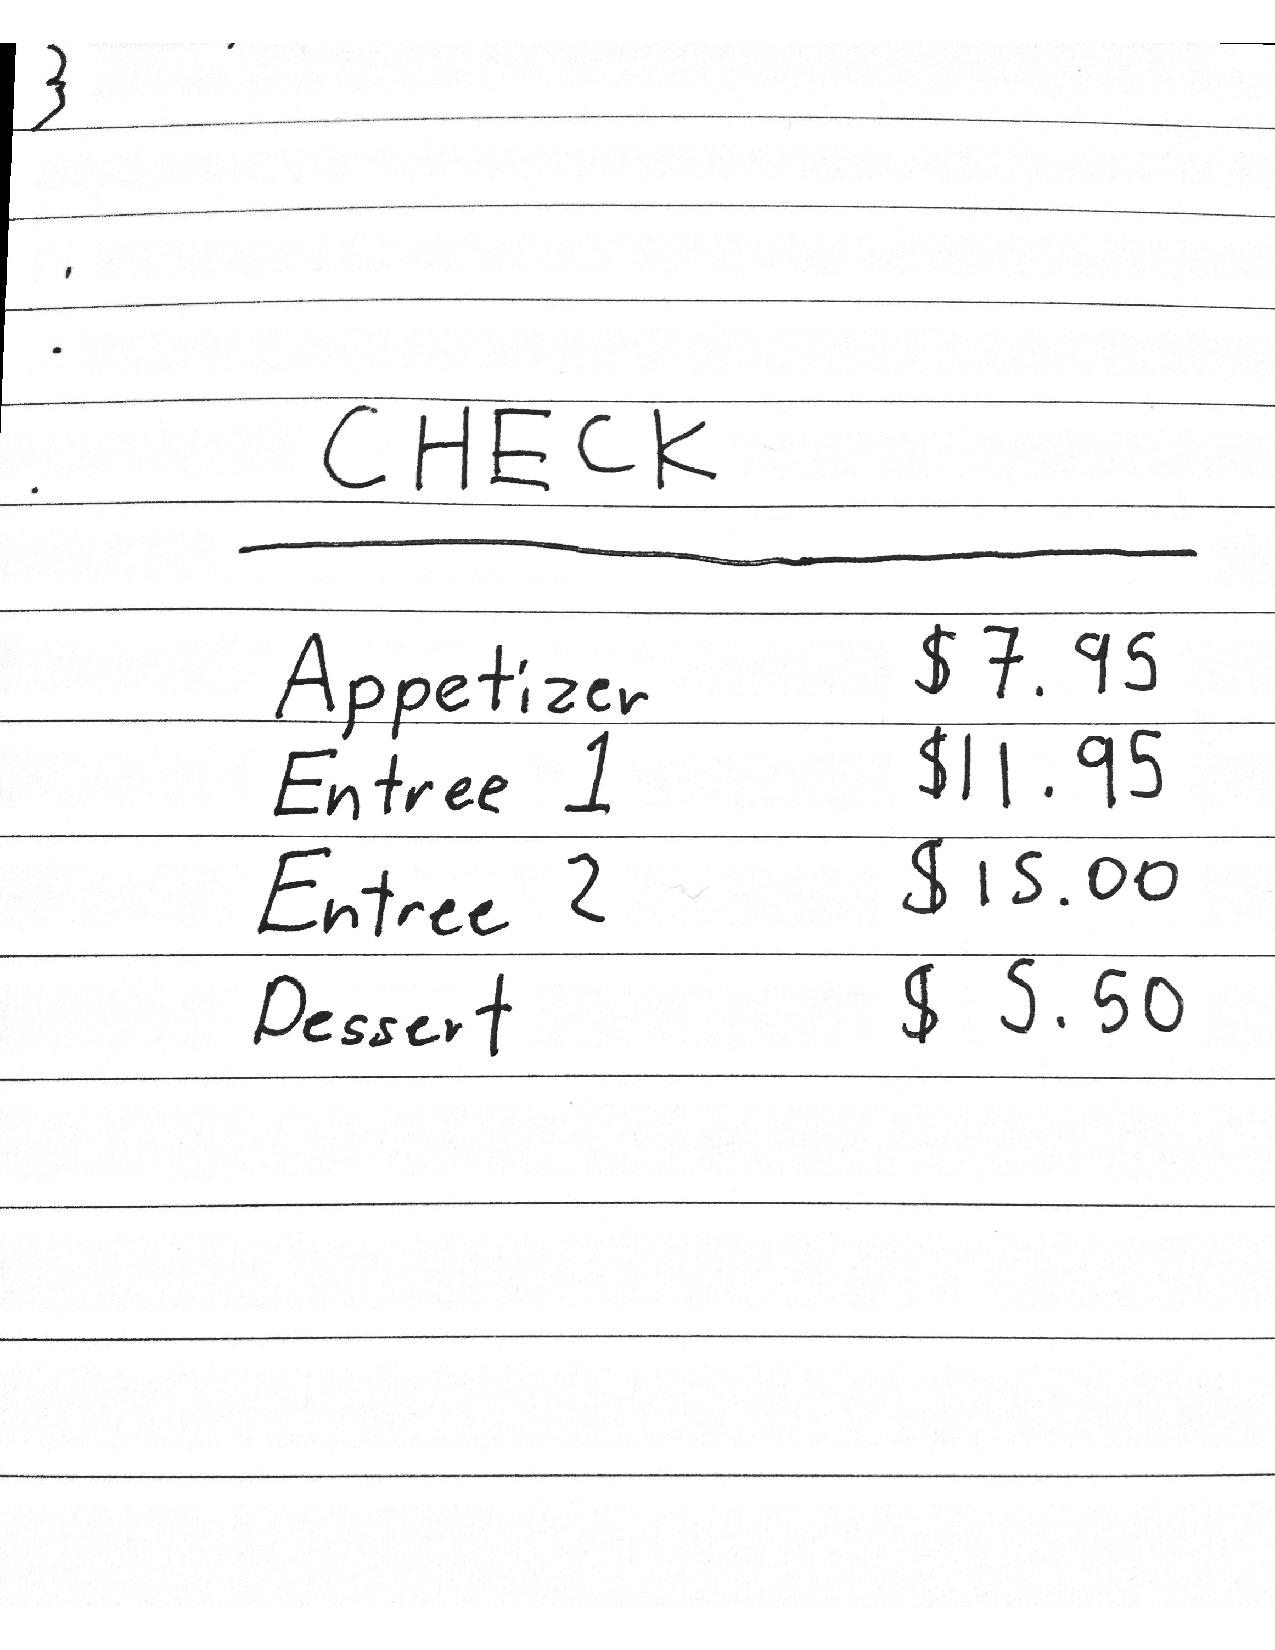 CHECK
Appetizer $7.95
Entree 1 $11.95
Entree 2 $15.00
Dessert $ 5.50